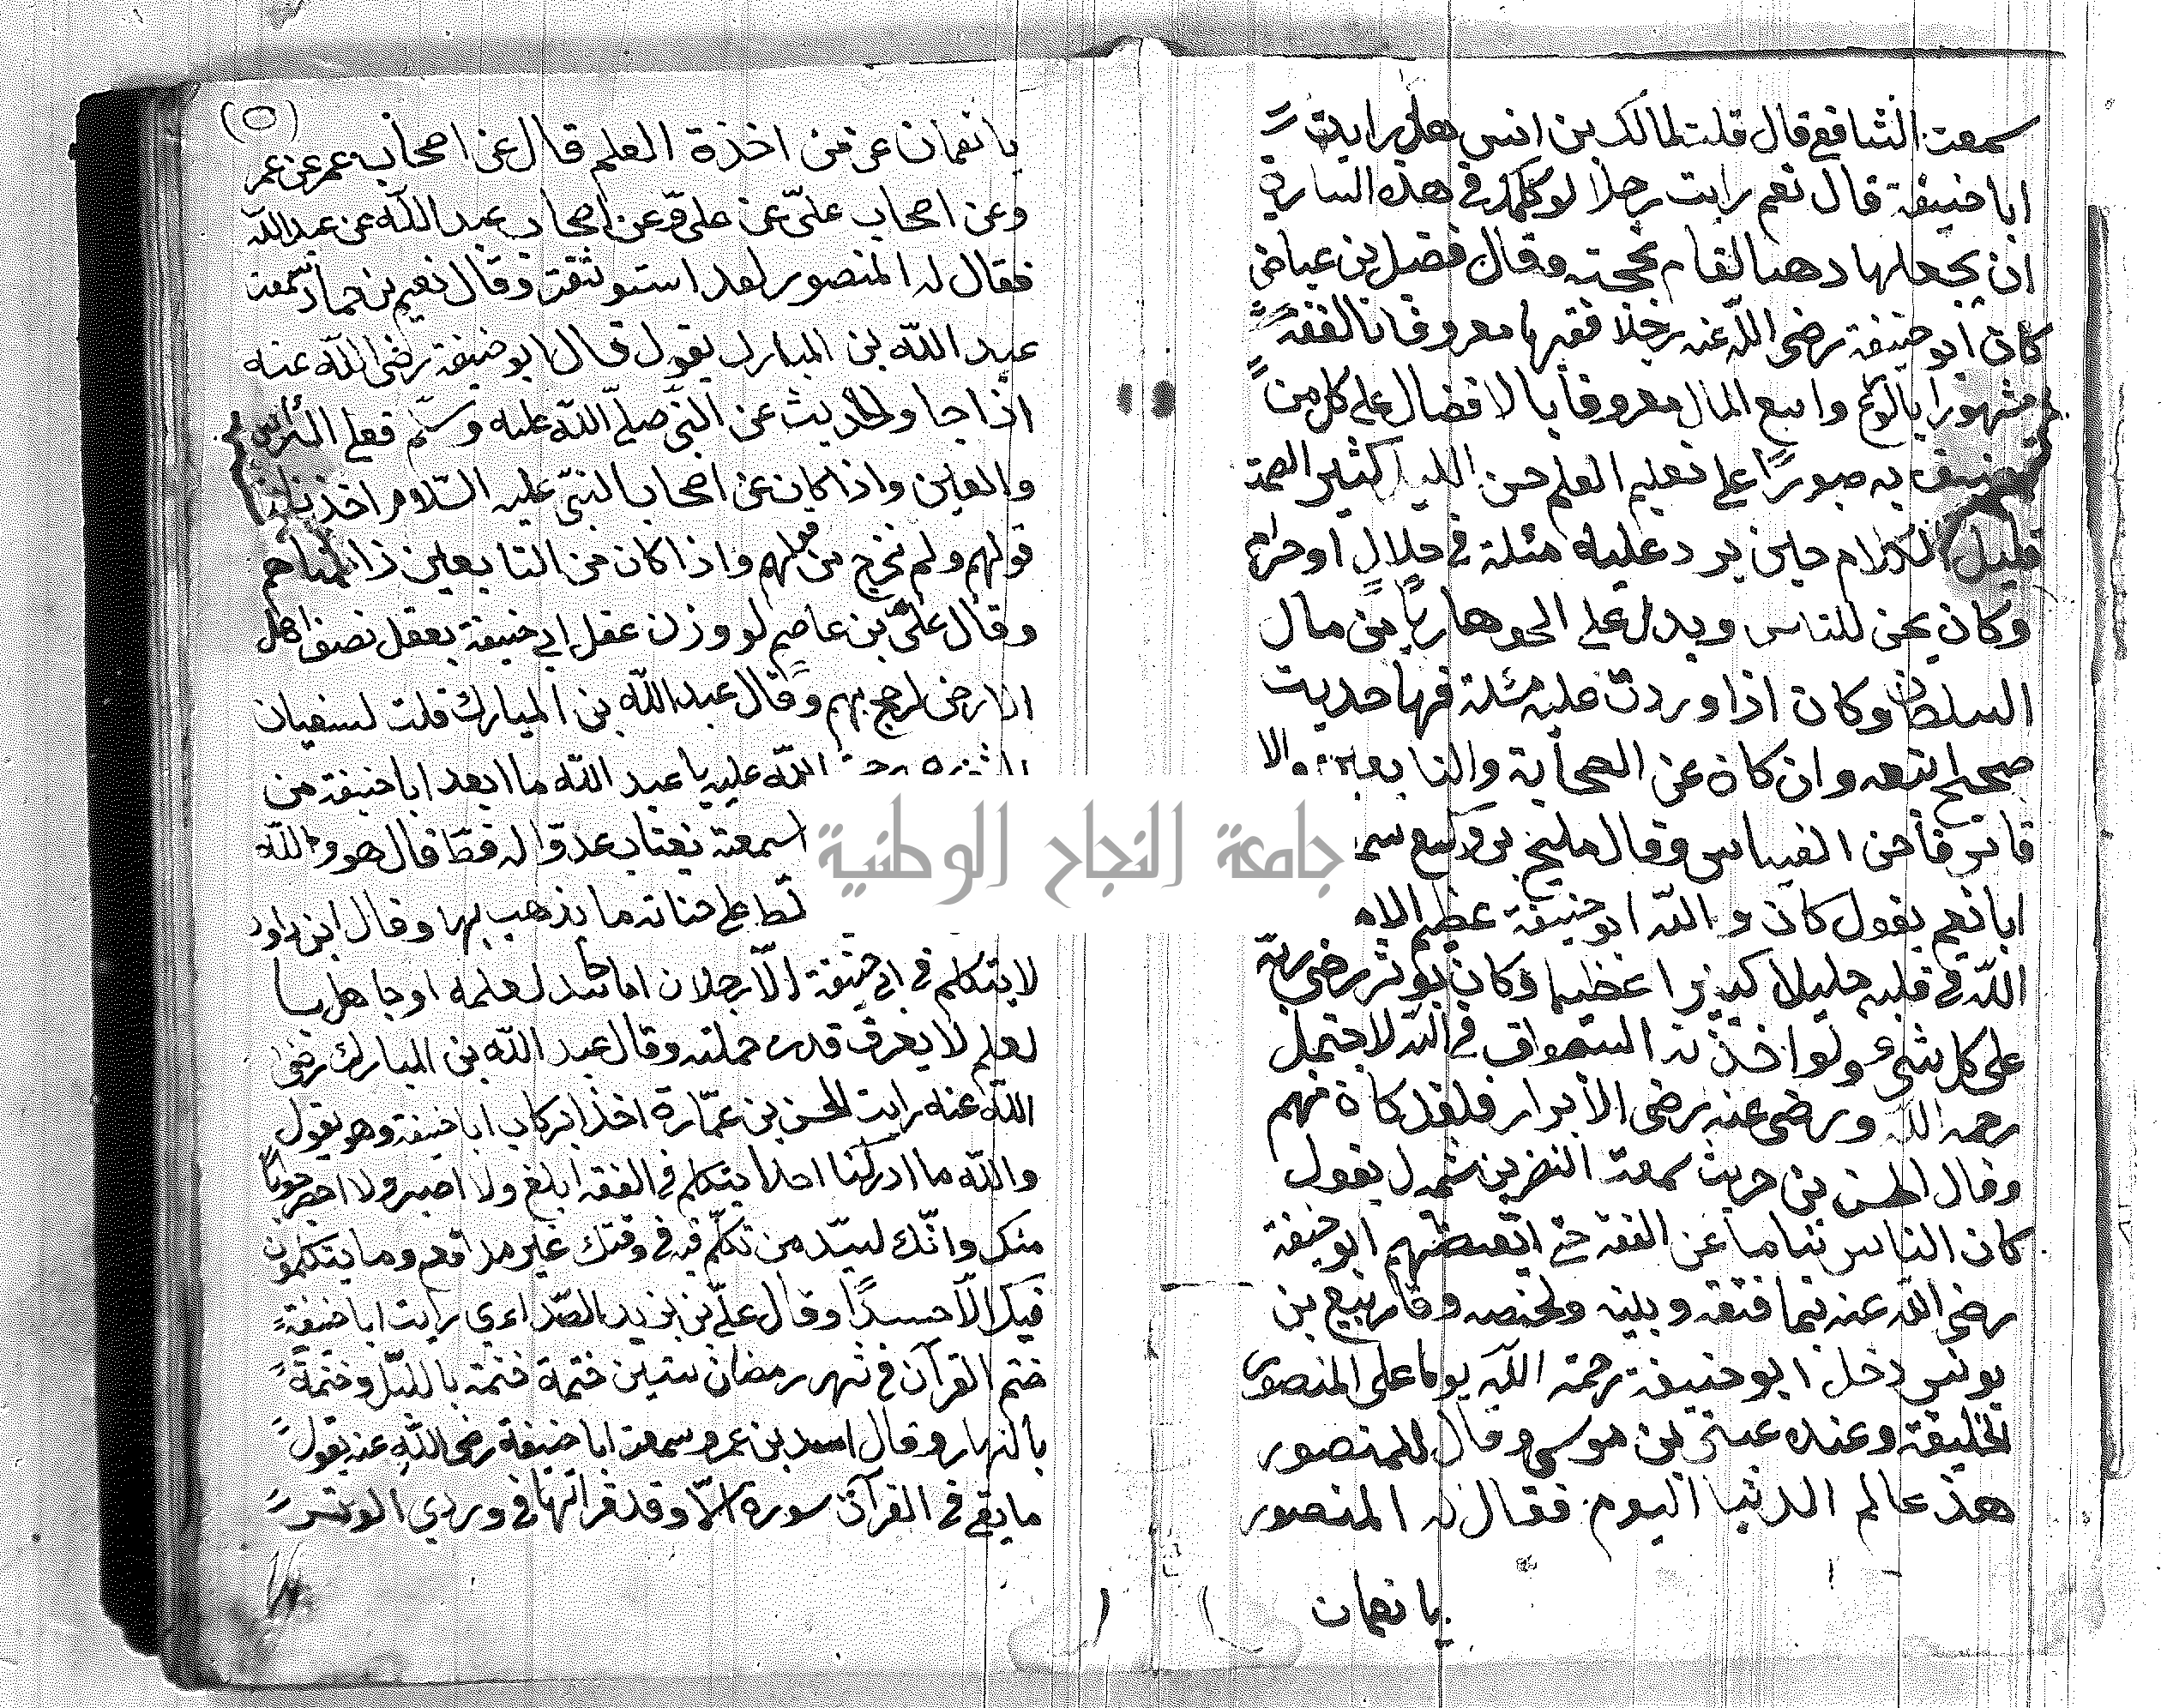 سمعت الشافعي قال قلت لمالك بن انس هل رايت
ابا حنيفة قال نعم رايت رجلا لو كلمك في هذه السارية
ان يجعلها دهبا لقام بحجته وقال فضيل بن عياض
كان ابو حنيفة رضي اللّه عنه رجلا فقيها معروفا بالفقه
مشهورا بالورع واسع المال معروفا بالافضال على كل من
يضيف به صبورا على تعليم العلم حسن الليل كثير الصمت
قليل الكلام حين يرد عليه مسئلة في حلال او حرام
وكان يحسن للناس ويدل على الحق هاربا من مال
السلطان وكان اذا وردت عليه مسئلة فيها حديث
صحيح اتبعه وان كان عن الصحابة والتابعين والا
قاس فاحسن القياس وقال مليح بن وكيع سمـ
ابا نعيم يقول كان واللّه ابو حنيفة عظيم الام
اللّه في قلبه جليلا كبيرا عظيما وكان يوثر رضى ربه
على كل شيء ولو اخذته السيوف في اللّه لاحتمل
رحمه اللّه ورضي عنه رضى الأبرار فلقد كان منهم
وقال الحسن بن حريث سمعت النضر بن شميل يقول
كان الناس نياما عن الفقه حتى ايقضهم ابو حنيفة
رضي اللّه عنه بما فتقه وبينه ولخصه وقال ربيع بن
يونس دخل ابو حنيفة رحمة اللّه يوما على المنصور
الخليفة وعنده عيسى بن موسى وقال للمنصور
هذ عالم الدنيا اليوم فقال له المنصور
يا نعمان
(٥)
يا نعمان عن من اخذة العلم قال عن اصحاب عمر عن عمر
وعن اصحاب عليّ عن عليّ وعن اصحاب عبد اللّه عن عبد اللّه
فقال له المنصور لقد استوثقت وقال نعيم بن حماد سمعت
عبد اللّه بن المبارك يقول قال ابو حنيفة رضي اللّه عنه
اذا جاء الحديث عن النّبي صلّى اللّه عليه وسلّم فعلى الراس
والعين واذا كان عن اصحاب النبيّ عليه السّلام اخذنا من
قولهم ولم نخرج من قولهم واذا كان من التابعين زاحمناهم
وقال عليّ بن عاصم لو وزن عقل ابي حنيفة بعقل نصف اهل
الارض لرجح بهم وقال عبد اللّه بن المبارك قلت لسفيان
اللّه عليه يا عبد اللّه ما ابعد ابا حنيفة من
سمعته يغتاب عدوّا له قطّ قال هو واللّه
لط على حسناته ما يذهب بها وقال ابن داود
لا يتكلم في ابي حنيفة الّا رجلان اما حاسد لعلمه او جاهل با
لعلم لا يعرف قدر حملته وقال عبد اللّه بن المبارك رضي
اللّه عنه رايت الحسن بن عمّارة اخذا بركاب ابا حنيفة وهو يقول
واللّه ما ادركنا احدا يتكلم في الفقه ابلغ ولا اصبر ولا احضر جوابا
منك وانّك لسيّد من تكلّم فيه في وقتك غير مدافع وما يتكلمون
فيك الّا حسدًا وقال عليّ بن يزيد الصّداءي رايت ابا حنيفة
ختم القرآن في شهر رمضان ستين ختمة ختمة بالليل وختمة
بالنهار وقال اسد بن عمرو سمعت ابا حنيفة رضي اللّه عنه يقول
ما بقي في القرآن سورة الّا وقد قراتها في وردي الوتر
جامعة النجاح الوطنية